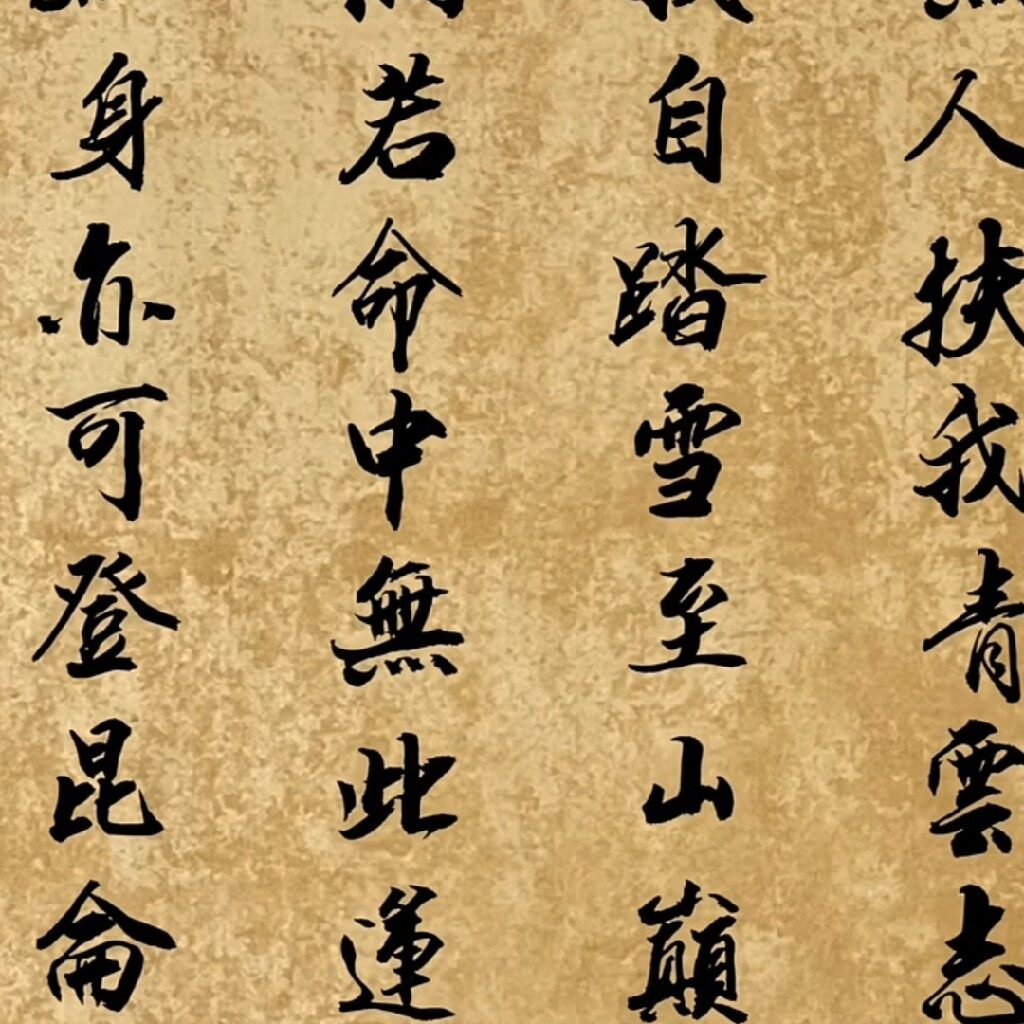 人扶我青雲志
自踏雪至山巔
若命中無此運
身亦可登昆侖